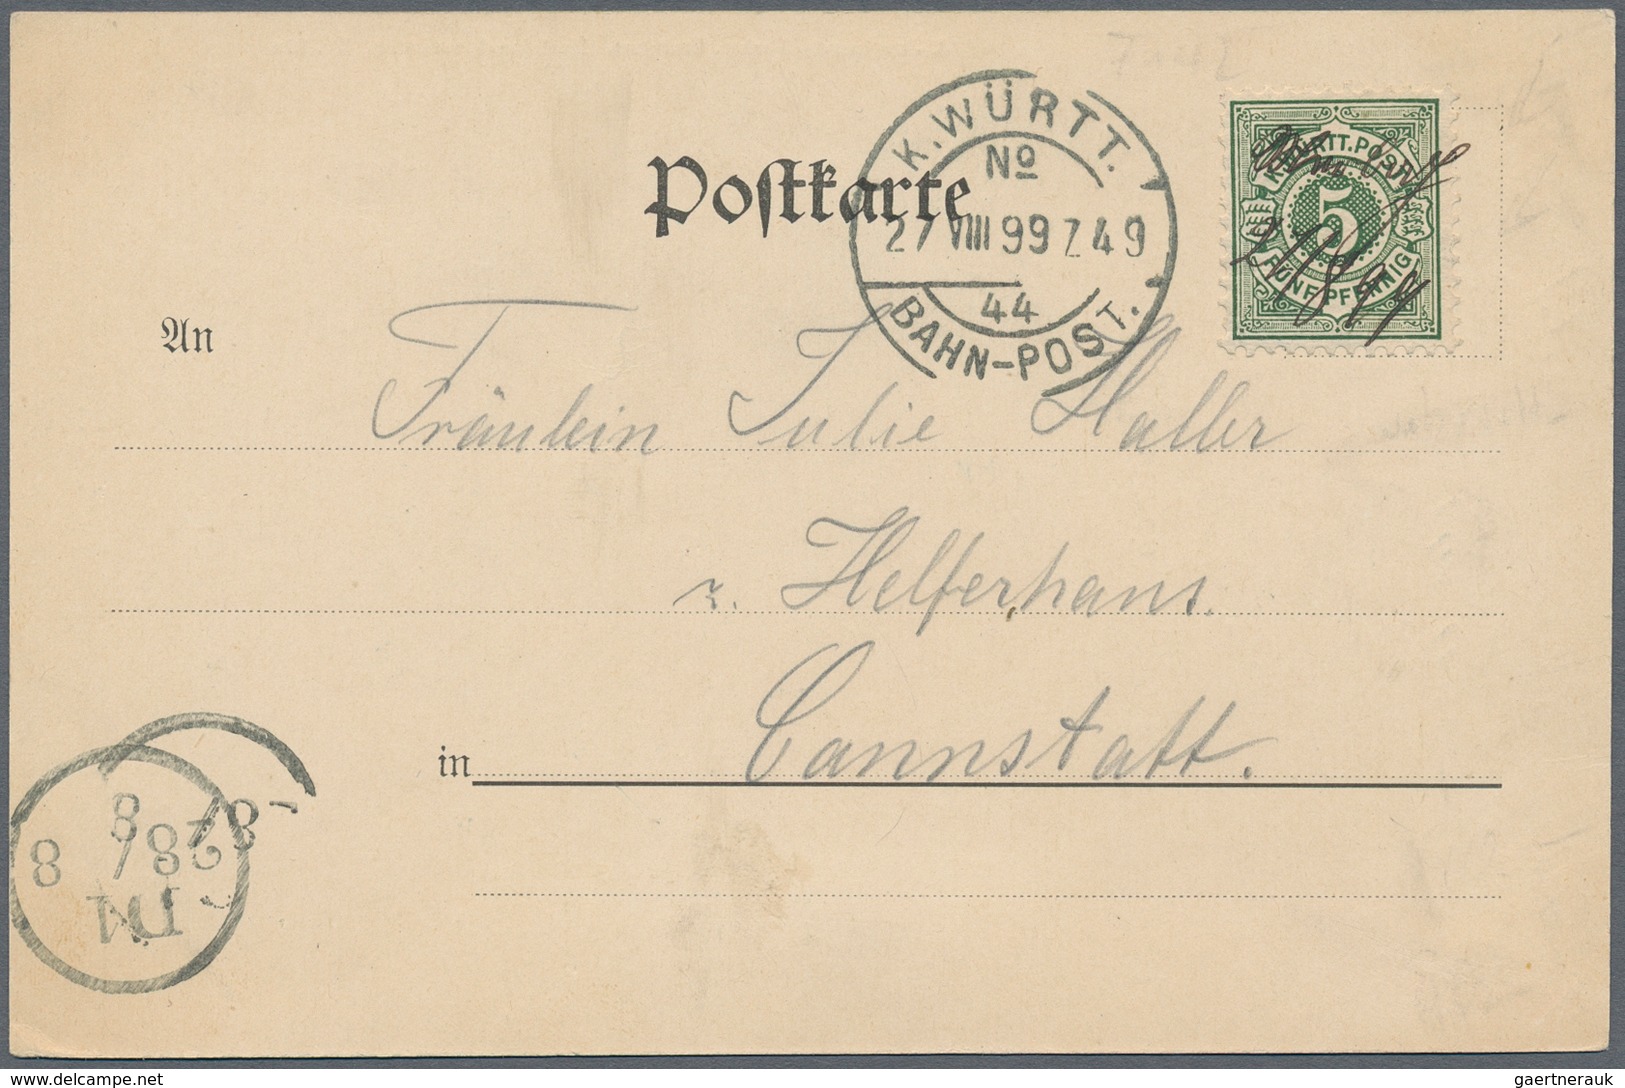 K. WÜRTT.
No
27 VIII 99 Z 49
44
BAHN-POST.
K. WÜRTT. POST
5
FÜNF PFENNIG
27/8 99
Postkarte
An
Fräulein Julie Haller
z. Helferhaus.
in Cannstatt.
8
28/8
8
gaertnerauk